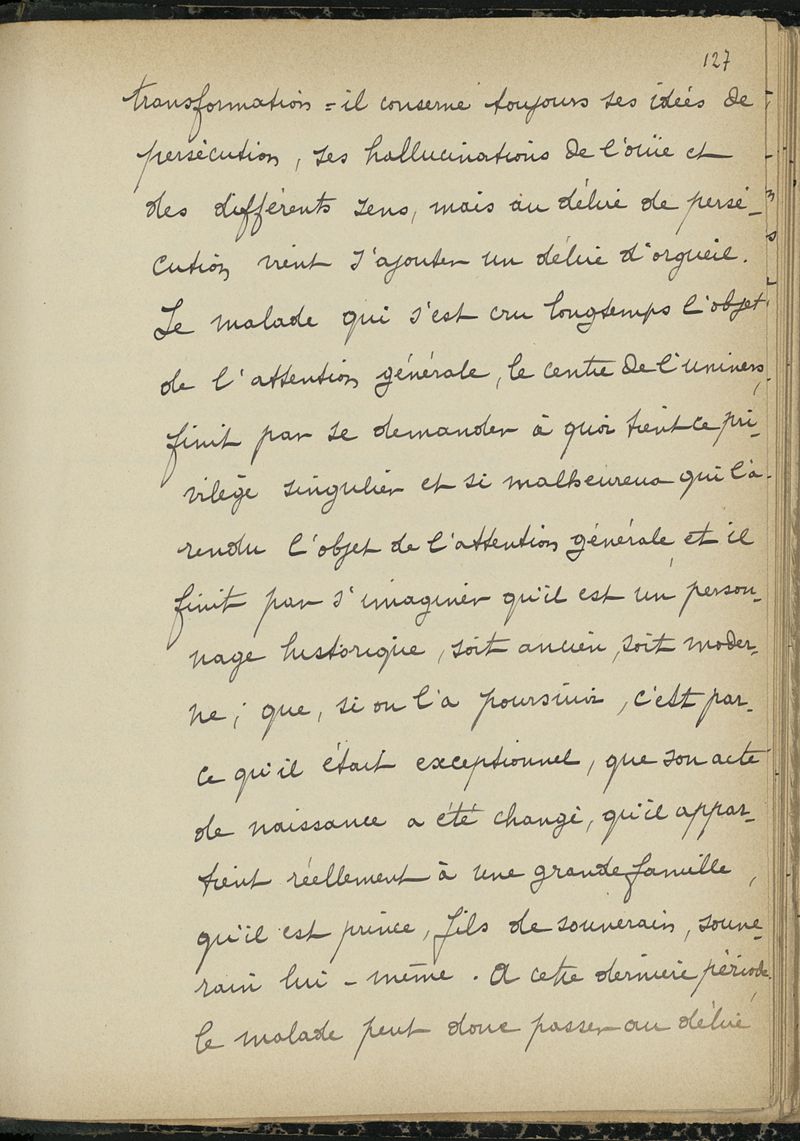 127
transformation = il conserve toujours ses idées de
persécution, ses hallucinations de l'ouïe et
des différents sens, mais au délire de persé-
cution vient s'ajouter un délire d'orgueil.
Le malade qui s'est cru longtemps l'objet
de l'attention générale, le centre de l'univers,
finit par se demander à quoi tient ce pri-
vilège singulier et si malheureux qui l'a
rendu l'objet de l'attention générale et il
finit par s'imaginer qu'il est un person-
nage historique, soit ancien, soit moder-
ne; que, si on l'a poursuivi, c'est par-
ce qu'il était exceptionnel, que son acte
de naissance a été changé, qu'il appar-
tient réellement à une grande famille,
qu'il est prince, fils de souverain, souve-
rain lui-même. A cette dernière période,
le malade peut donc passer au délire